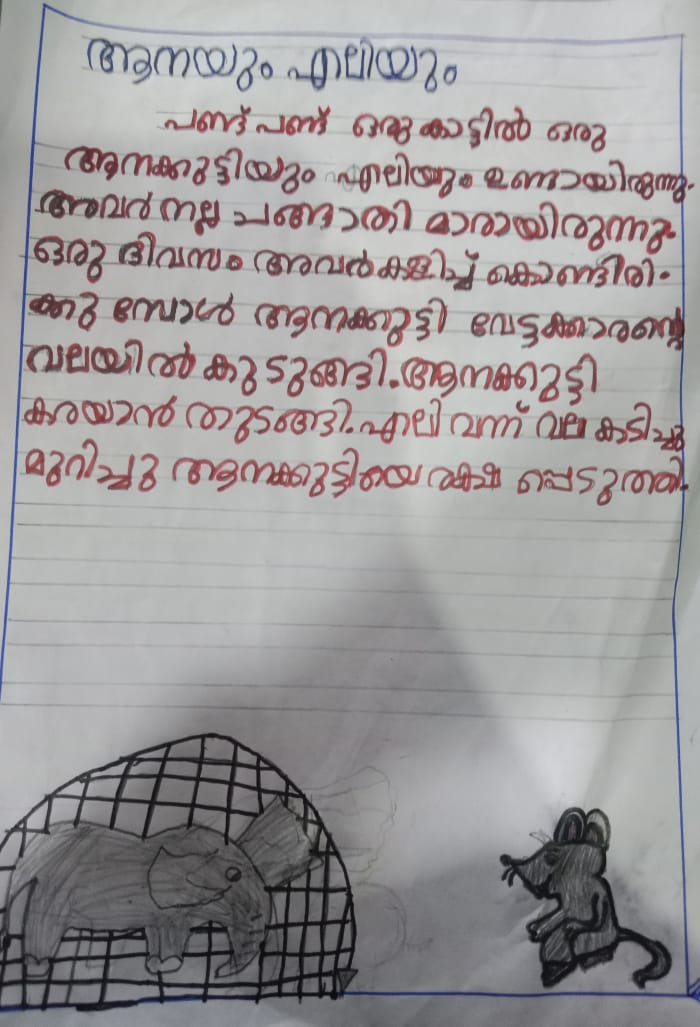 ആനയും എലിയും
പണ്ട് പണ്ട് ഒരു കാട്ടിൽ ഒരു
ആനക്കുട്ടിയും എലിയും ഉണ്ടായിരുന്നു.
അവർ നല്ല ചങ്ങാതി മാരായിരുന്നു.
ഒരു ദിവസം അവർ കളിച്ച് കൊണ്ടിരി.
ക്കു മ്പോൾ ആനക്കുട്ടി വേട്ടക്കാരന്റെ
വലയിൽ കുടുങ്ങി. ആനക്കുട്ടി
കരയാൻ തുടങ്ങി. എലി വന്ന് വല കടിച്ചു
മുറിച്ചു ആനക്കുട്ടിയെ രക്ഷ പ്പെടുത്തി.